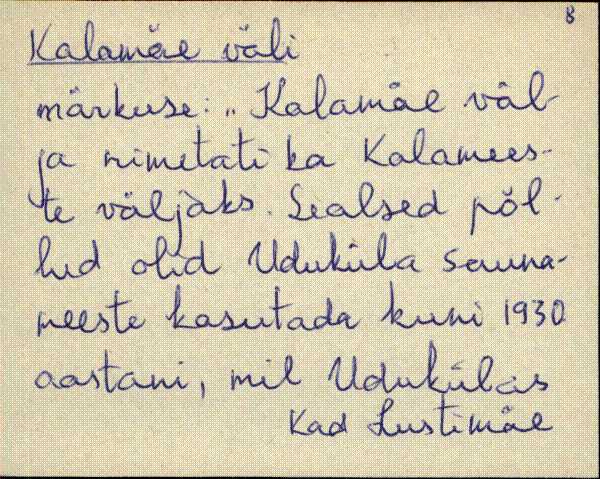 8
Kalamäe väli
märkuse: „Kalamäe väl-
ja nimetati ka Kalamees-
te väljaks. Sealsed põl-
lud olid Uduküla sauna-
meeste kasutada kuni 1930
aastani, mil Udukülas
Kad Lustimäe